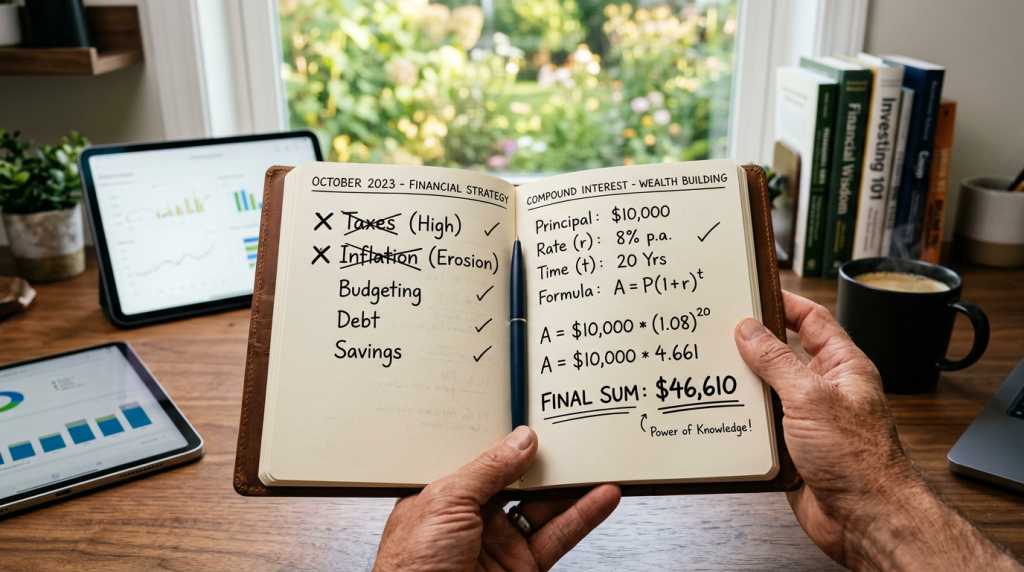 OCTOBER 2023 - FINANCIAL STRATEGY
✗ Taxes (High) ✓
✗ Inflation (Erosion)
Budgeting ✓
Debt ✓
Savings ✓
COMPOUND INTEREST - WEALTH BUILDING
Principal: $10,000
Rate (r): 8% p.a. ✓
Time (t): 20 Yrs
Formula: A = P(1+r)^t
A = $10,000 * (1.08)^20
A = $10,000 * 4.661
FINAL SUM: $46,610
Power of Knowledge!
Financial Wisdom
Investing 101